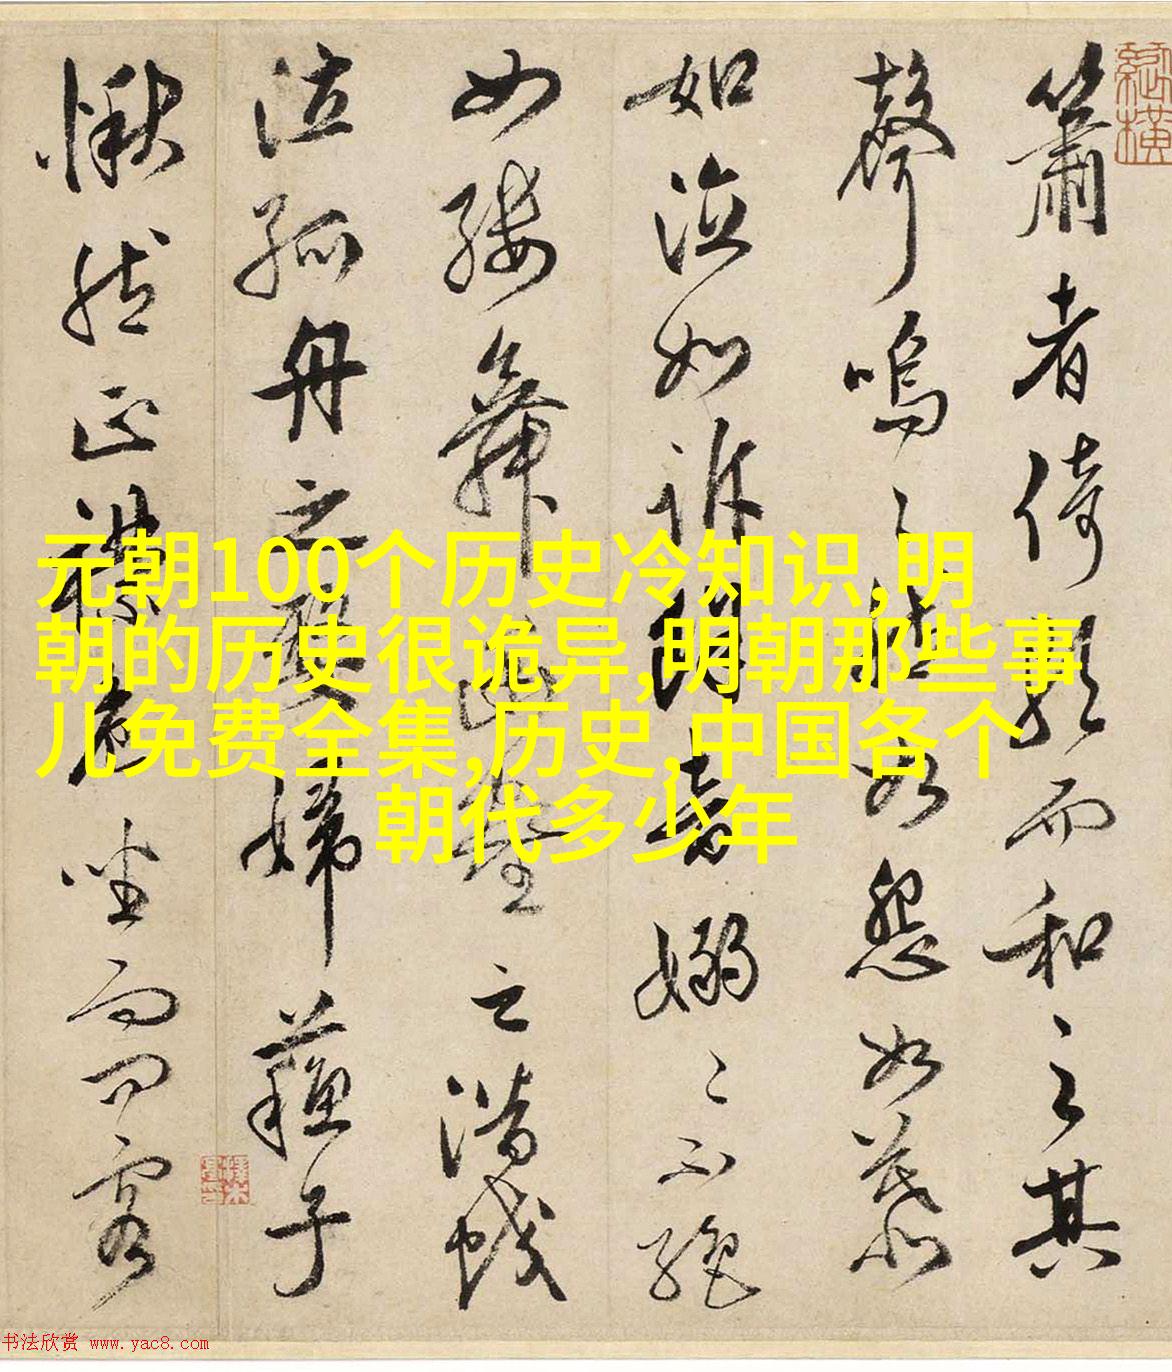 簫者倚歌而和之其
聲嗚〻然如怨如慕
如泣如訴餘音嫋〻不絕
如縷舞幽壑之潛蛟
泣孤舟之嫠婦蘇子
愀然正襟危坐而問客
元朝100个历史冷知识,明
朝的历史很诡异,明朝那些事
儿免费全集,历史,中国各个
朝代多少年
书法欣赏 www.yac8.com